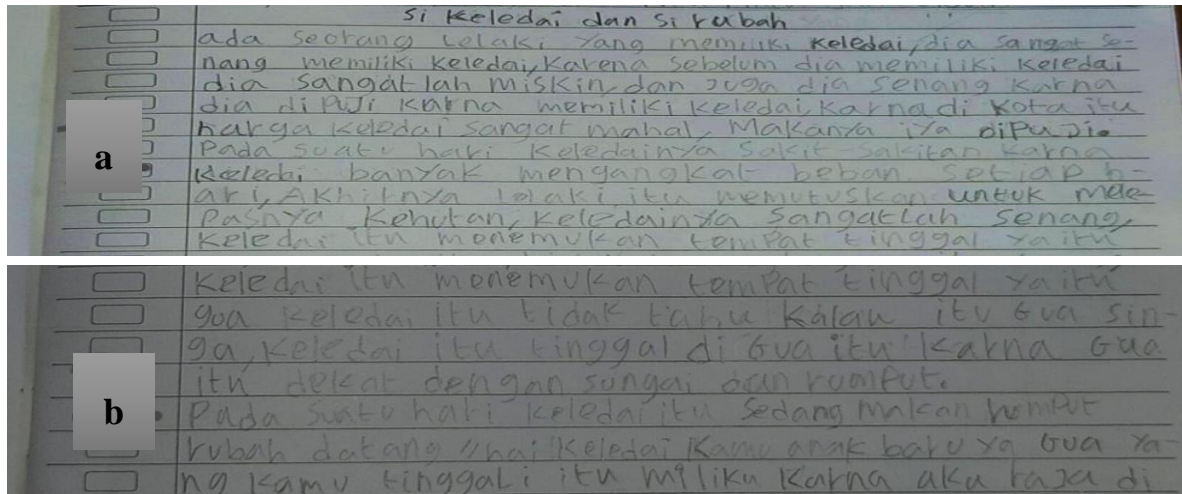 si Keledai dan si rubah
ada seorang lelaki yang memiliki Keledai, dia sangat se-
nang memiliki Keledai, Karena sebelum dia memiliki Keledai
dia sangatlah miskin, dan juga dia senang Karna
dia dipuji Karna memiliki Keledai, Karna di Kota itu
harga Keledai sangat mahal, Makanya iya dipuji.
Pada suatu hari Keledainya sakit sakitan Karna
Keledai banyak mengangkat beban setiap h-
ari, Akhirnya lelaki itu memutuskan untuk mele-
pasnya Kehutan, Keledainya sangatlah senang,
Keledai itu menemukan tempat tinggal yaitu
a
Keledai itu menemukan tempat tinggal yaitu
goa Keledai itu tidak tahu Kalau itu Gua sin-
ga, Keledai itu tinggal di Gua itu Karna Gua
itu dekat dengan sungai dan rumput.
Pada suatu hari Keledai itu sedang makan rumput
rubah datang "hai Keledai Kamu anak baru ya Gua ya-
ng Kamu tinggali itu miliku Karna aku raja di
b